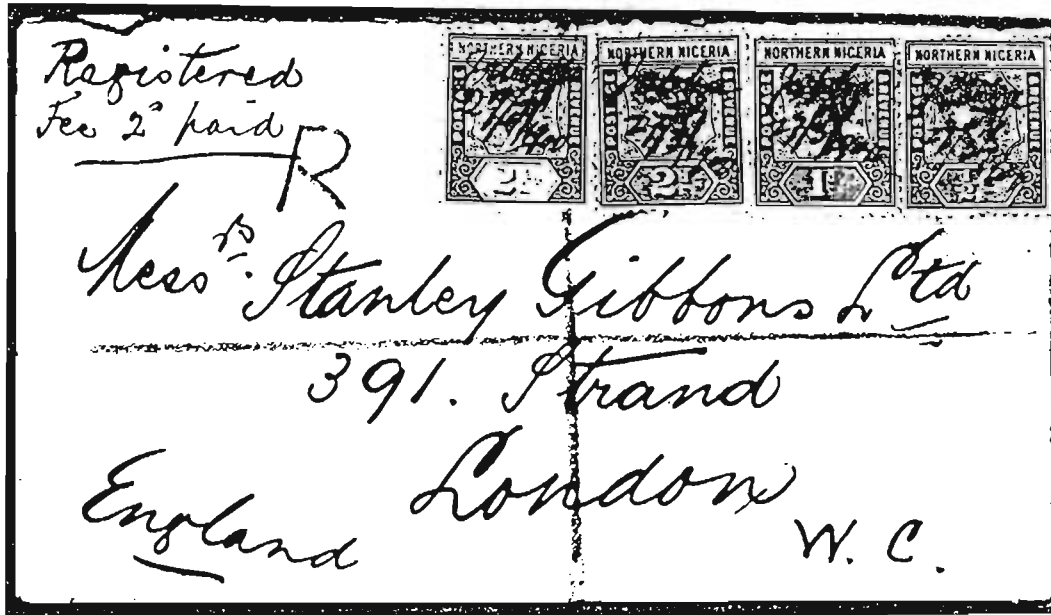 Registered
Fee 2ᵈ paid
R
NORTHERN NIGERIA NORTHERN NIGERIA NORTHERN NIGERIA NORTHERN NIGERIA
2ᵈ 2ᵈ 1ᵈ ½ᵈ
Messʳˢ. Stanley Gibbons Ltd
391. Strand
London
W. C.
England